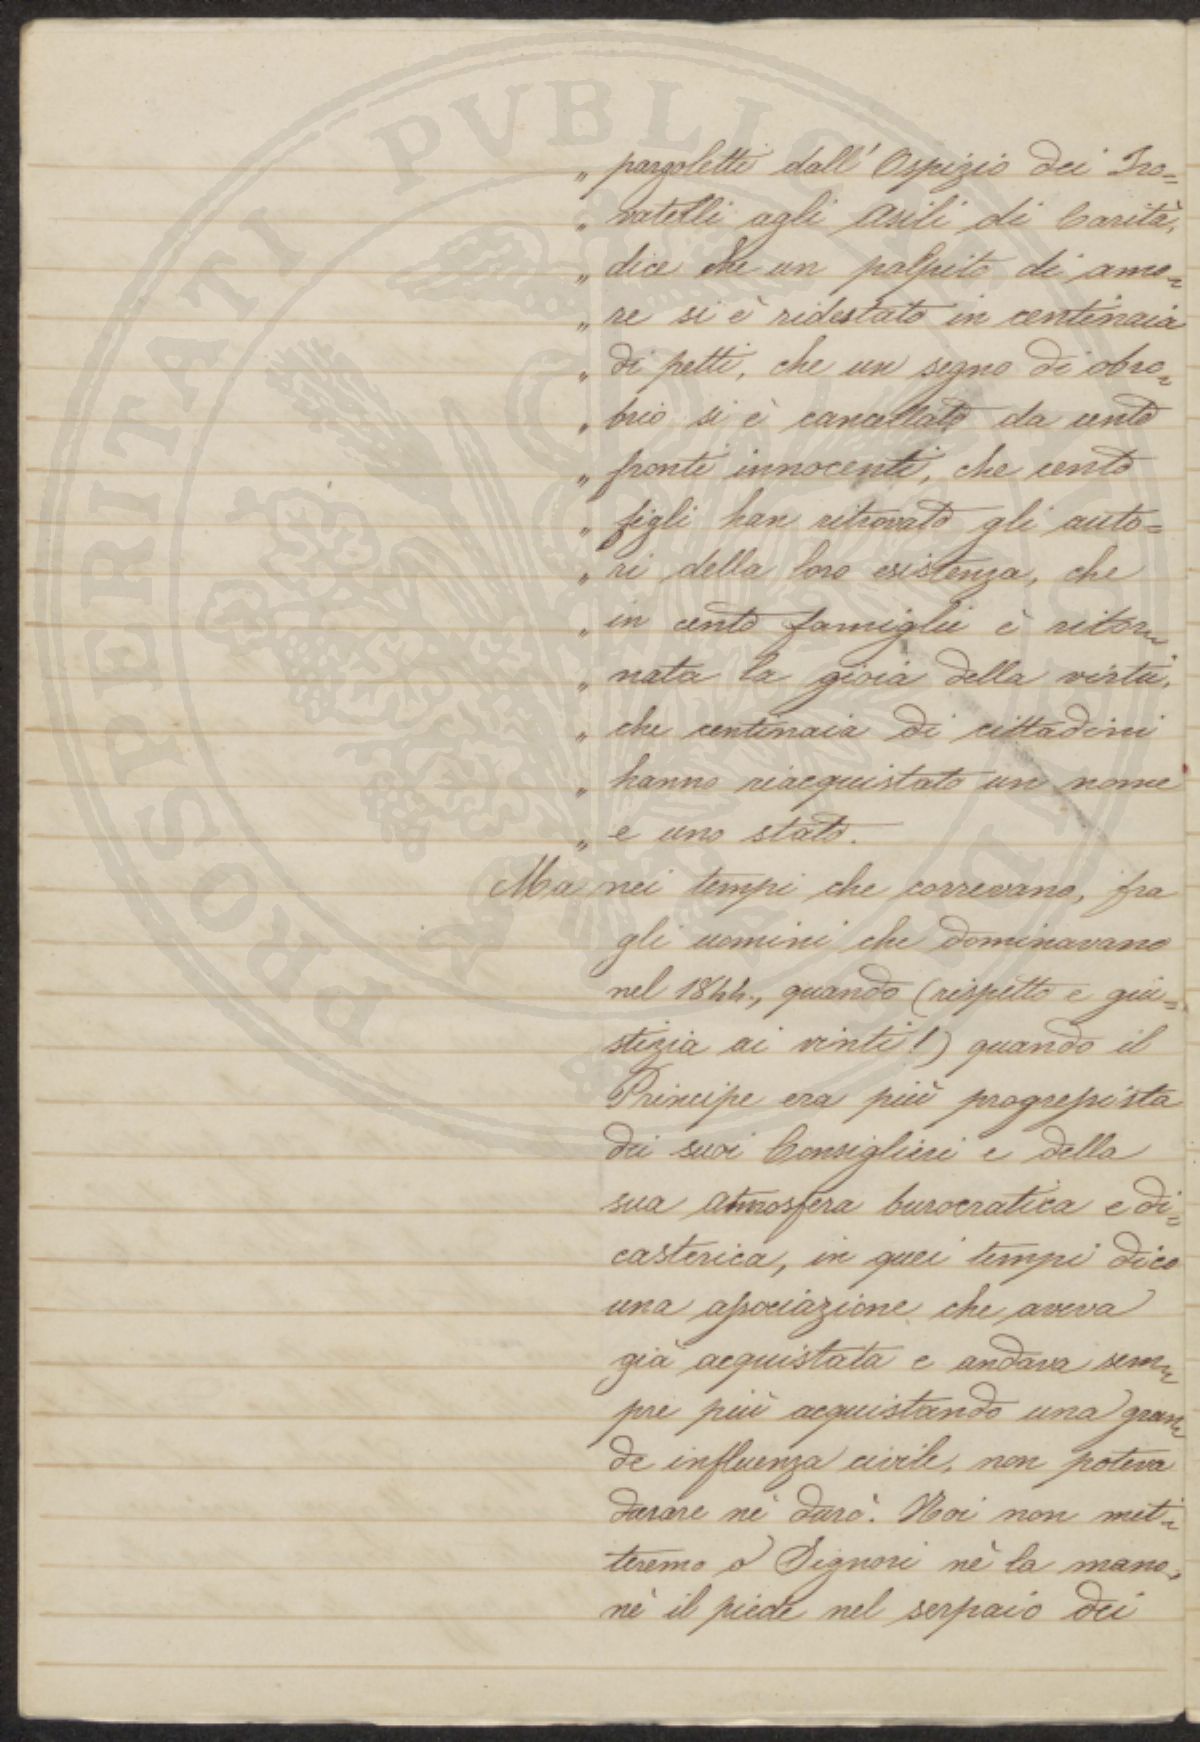 „ pargoletti dall' Ospizio dei Tro=
„ vatelli agli Asili di Carità,
„ dice che un palpito di amo=
„ re si è ridestato in centinaia
„ di petti, che un segno di obro=
„ brio si è cancellato da cento
„ fronti innocenti, che cento
„ figli han ritrovato gli auto=
„ ri della loro esistenza, che
„ in cento famiglie è ritor=
„ nata la gioia della virtù,
„ che centinaia di cittadini
„ hanno riacquistato un nome
„ e uno stato.
Ma nei tempi che correvano, fra
gli uomini che dominavano
nel 1844., quando (rispetto e giu=
stizia ai vinti!) quando il
Principe era più progressista
dei suoi Consiglieri e della
sua atmosfera burocratica e di=
casterica, in quei tempi dico
una associazione che aveva
già acquistata e andava sem=
pre più acquistando una gran=
de influenza civile, non poteva
durare nè durò. Noi non met=
teremo o Signori nè la mano,
nè il piede nel serpaio dei
PROSPERITATI PUBLICAE